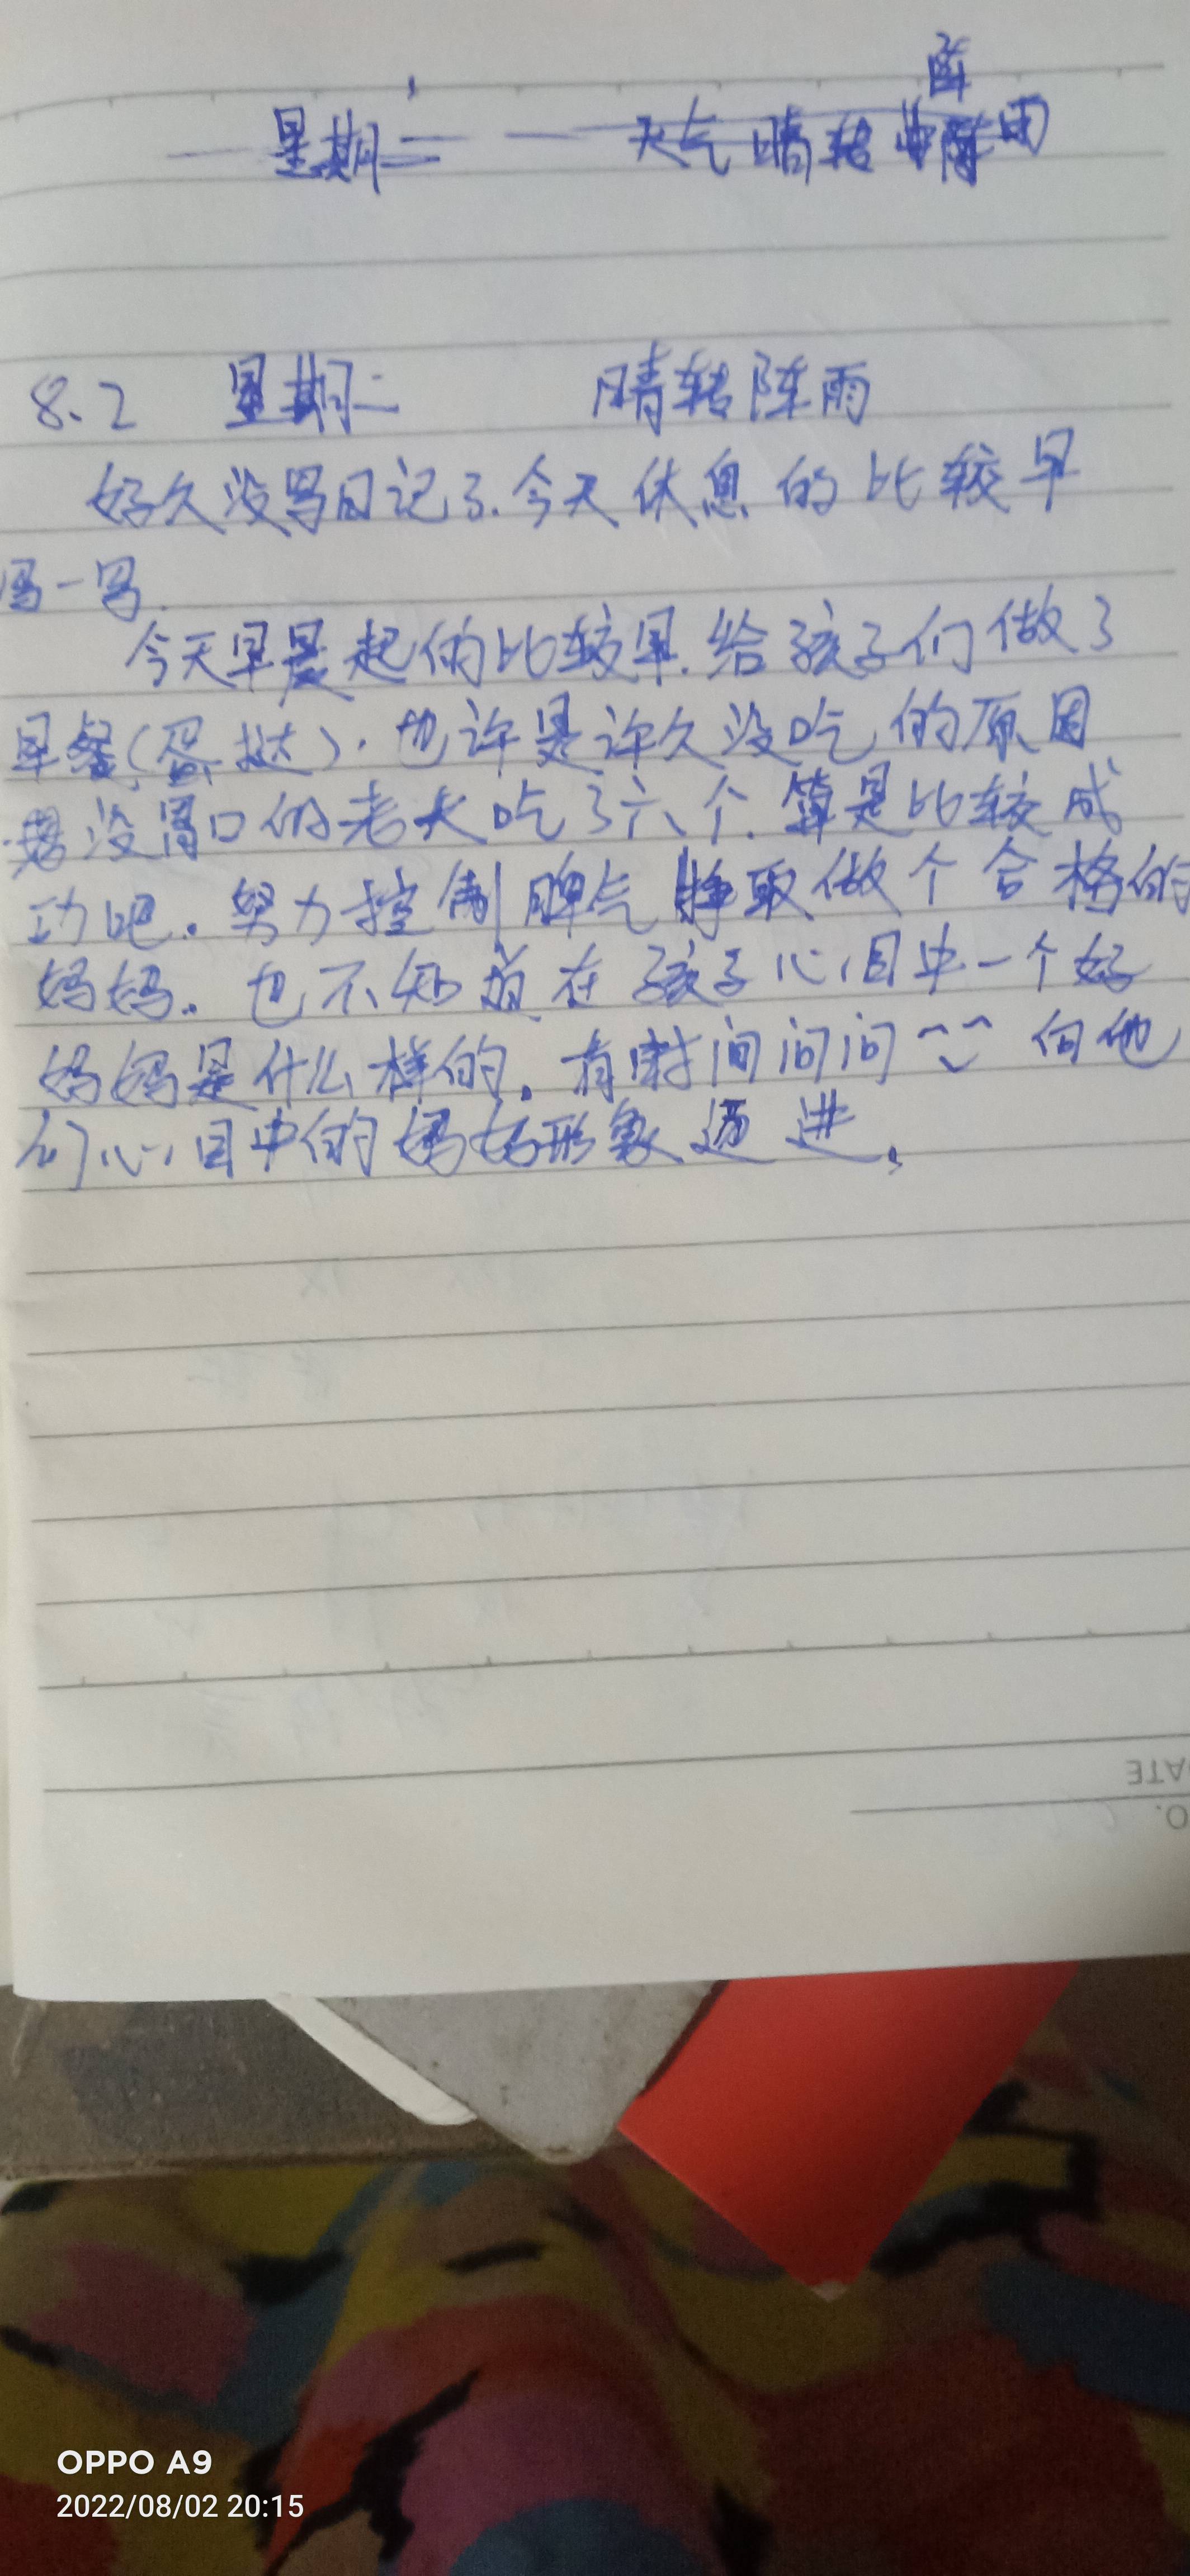 阵
星期二 天气晴转阵雨
8.2 星期二 晴转阵雨
好久没写日记了.今天休息的比较早
写一写.
今天早晨起的比较早.给孩子们做了
早餐(蛋挞).也许是许久没吃的原因
没胃口的老大吃了六个.算是比较成
功吧.努力控制脾气争取做个合格的
妈妈.也不知道在孩子心目中一个好
妈妈是什么样的.有时间问问 向他
们心目中的妈妈形象迈进.
DATE
O.
OPPO A9
2022/08/02 20:15